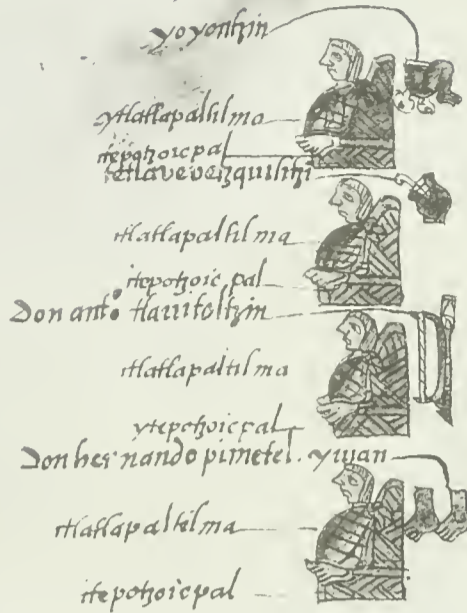 yoyontzin
ytlatlapaltilma
itepotzoicpal
tetlavevetzquititzi
itlatlapaltilma
itepotzoicpal
Don antº tlavitoltzin
itlatlapaltilma
ytepotzoicpal
Don hernando pimetel. yvan
itlatlapaltilma
itepotzoicpal